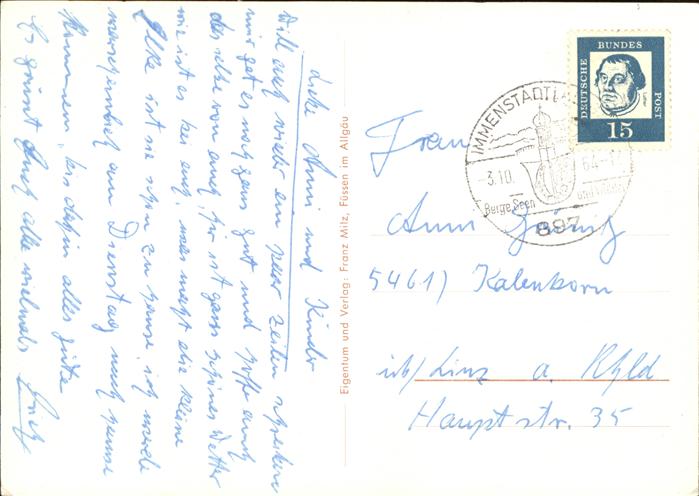 Liebe Anni und Kinder
Will euch wieder ein paar Zeilen schreiben
mir get es noch ganz gut und hoffe auch
das selbe von euch, hir ist ganz schönes Wetter
wie ist es bei euch, was macht die kleine
Elke ist sie schon zu Hause, ich werde
warscheinlich am Dienstag nach Hause
kommen, bis dahin alles gute
Es grüsst Euch alle vielmals
Eigentum und Verlag: Franz Milz, Füssen im Allgäu
DEUTSCHE BUNDES POST
Luther
15
IMMENSTADT
3.10. 64-17
Berge Seen und Wälder
897
Frau
Anni
5461) Kalenborn
üb/ Linz a. Rhld
Hauptstr. 35